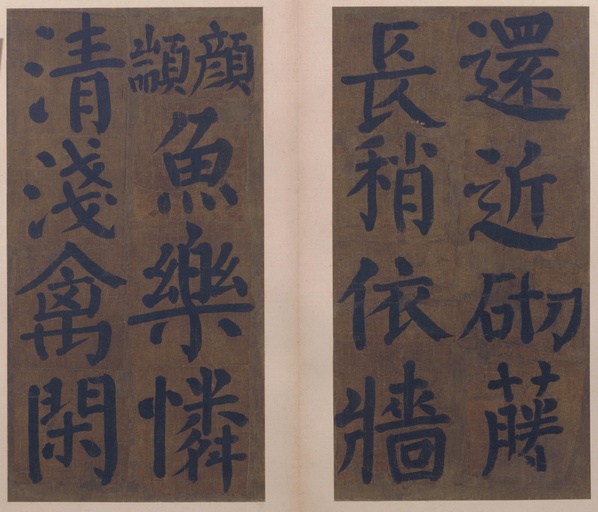 還近砌藤
長稍依牆
顔顓
魚樂憐
清淺禽閑